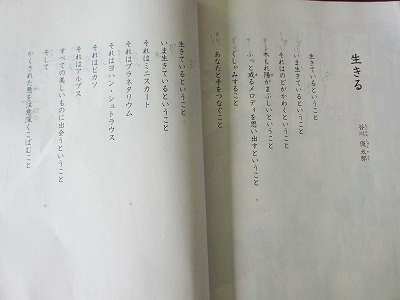 生きる
谷川 俊太郎
生きているということ
いま生きているということ
それはのどがかわくということ
木もれ陽がまぶしいということ
ふっと或るメロディを思い出すということ
くしゃみすること
あなたと手をつなぐこと
生きているということ
いま生きているということ
それはミニスカート
それはプラネタリウム
それはヨハン・シュトラウス
それはピカソ
それはアルプス
すべての美しいものに出会うということ
そして
かくされた悪を注意深くこばむこと